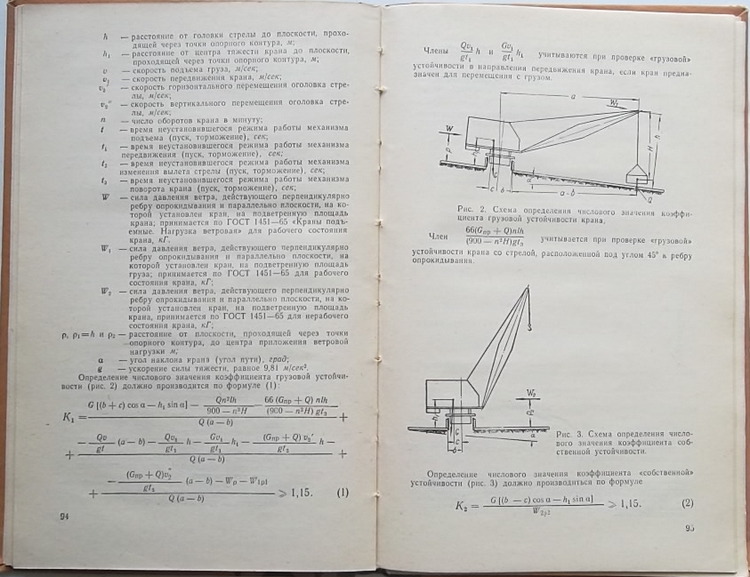 h — расстояние от головки стрелы до плоскости, прохо-
дящей через точки опорного контура, м;
h₁ — расстояние от центра тяжести крана до плоскости,
проходящей через точки опорного контура, м;
v — скорость подъема груза, м/сек;
v₁ — скорость передвижения крана, м/сек;
v₂′ — скорость горизонтального перемещения оголовка стре-
лы, м/сек;
v₂″ — скорость вертикального перемещения оголовка стре-
лы, м/сек;
n — число оборотов крана в минуту;
t — время неустановившегося режима работы механизма
подъема (пуск, торможение), сек;
t₁ — время неустановившегося режима работы механизма
передвижения (пуск, торможение), сек;
t₂ — время неустановившегося режима работы механизма
изменения вылета стрелы (пуск, торможение), сек;
t₃ — время неустановившегося режима работы механизма
поворота крана (пуск, торможение), сек;
W — сила давления ветра, действующего перпендикулярно
ребру опрокидывания и параллельно плоскости, на ко-
торой установлен кран, на подветренную площадь
крана; принимается по ГОСТ 1451—65 «Краны подъ-
емные. Нагрузка ветровая» для рабочего состояния
крана, кГ.
W₁ — сила давления ветра, действующего перпендикулярно
ребру опрокидывания и параллельно плоскости, на
которой установлен кран, на подветренную площадь
груза; принимается по ГОСТ 1451—65 для рабочего
состояния крана, кГ;
W₂ — сила давления ветра, действующего перпендикулярно
ребру опрокидывания и параллельно плоскости, на ко-
торой установлен кран, на подветренную площадь
крана, принимается по ГОСТ 1451—65 для нерабочего
состояния крана, кГ;
ρ, ρ₁=h и ρ₂ — расстояние от плоскости, проходящей через точки
опорного контура, до центра приложения ветровой
нагрузки м;
α — угол наклона крана (угол пути), град;
g — ускорение силы тяжести, равное 9,81 м/сек².
Определение числового значения коэффициента грузовой устойчи-
вости (рис. 2) должно производится по формуле (1)
K₁ = G [(b + c) cos α — h₁ sin α] — Qn²lh / (900 — n²H) — 66 (Gпр + Q) nlh / (900 — n²H) gt₃ / Q (a — b) +
+ — Qv / gt (a — b) — Qv₁ / gt₁ h — Gv₁ / gt₁ h₁ — (Gпр + Q) v₂′ / gt₂ h — / Q (a — b) +
+ — (Gпр + Q)v₂″ / gt₂ (a — b) — Wρ — W₁ρ₁ / Q (a — b) ⩾ 1,15. (1)
94
Члены Qv₁ / gt₁ h и Gv₁ / gt₁ h₁ учитываются при проверке «грузовой»
устойчивости в направлении передвижения крана, если кран предна-
значен для перемещения с грузом.
a
W₁
W
ρ
h
H
c b
a-b
α
Q
Рис. 2. Схема определения числового значения коэффи-
циента грузовой устойчивости крана.
Член 66(Gпр + Q)nlh / (900 — n²H)gt₃ учитывается при проверке «грузовой»
устойчивости крана со стрелой, расположенной под углом 45° к ребру
опрокидывания.
W₂
ρ₂
c
b
α
Рис. 3. Схема определения число-
вого значения коэффициента соб-
ственной устойчивости.
Определение числового значения коэффициента «собственной»
устойчивости (рис. 3) должно производиться по формуле
K₂ = G [(b — c) cos α — h₁ sin α] / W₂ρ₂ ⩾ 1,15. (2)
95